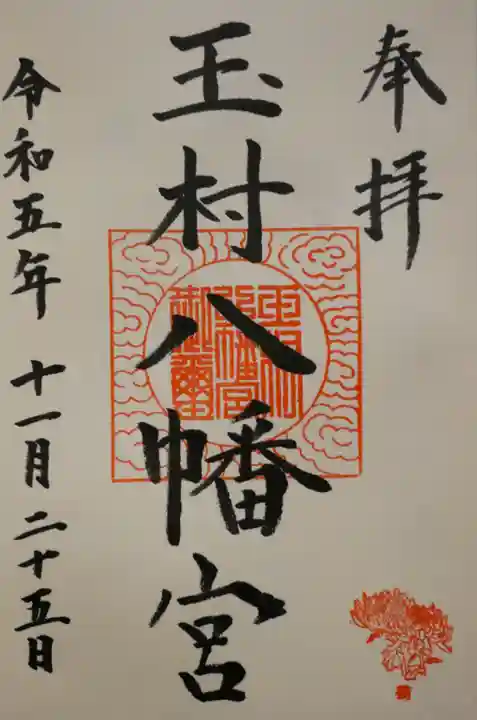 奉拝
玉村八幡宮
令和五年十一月二十五日